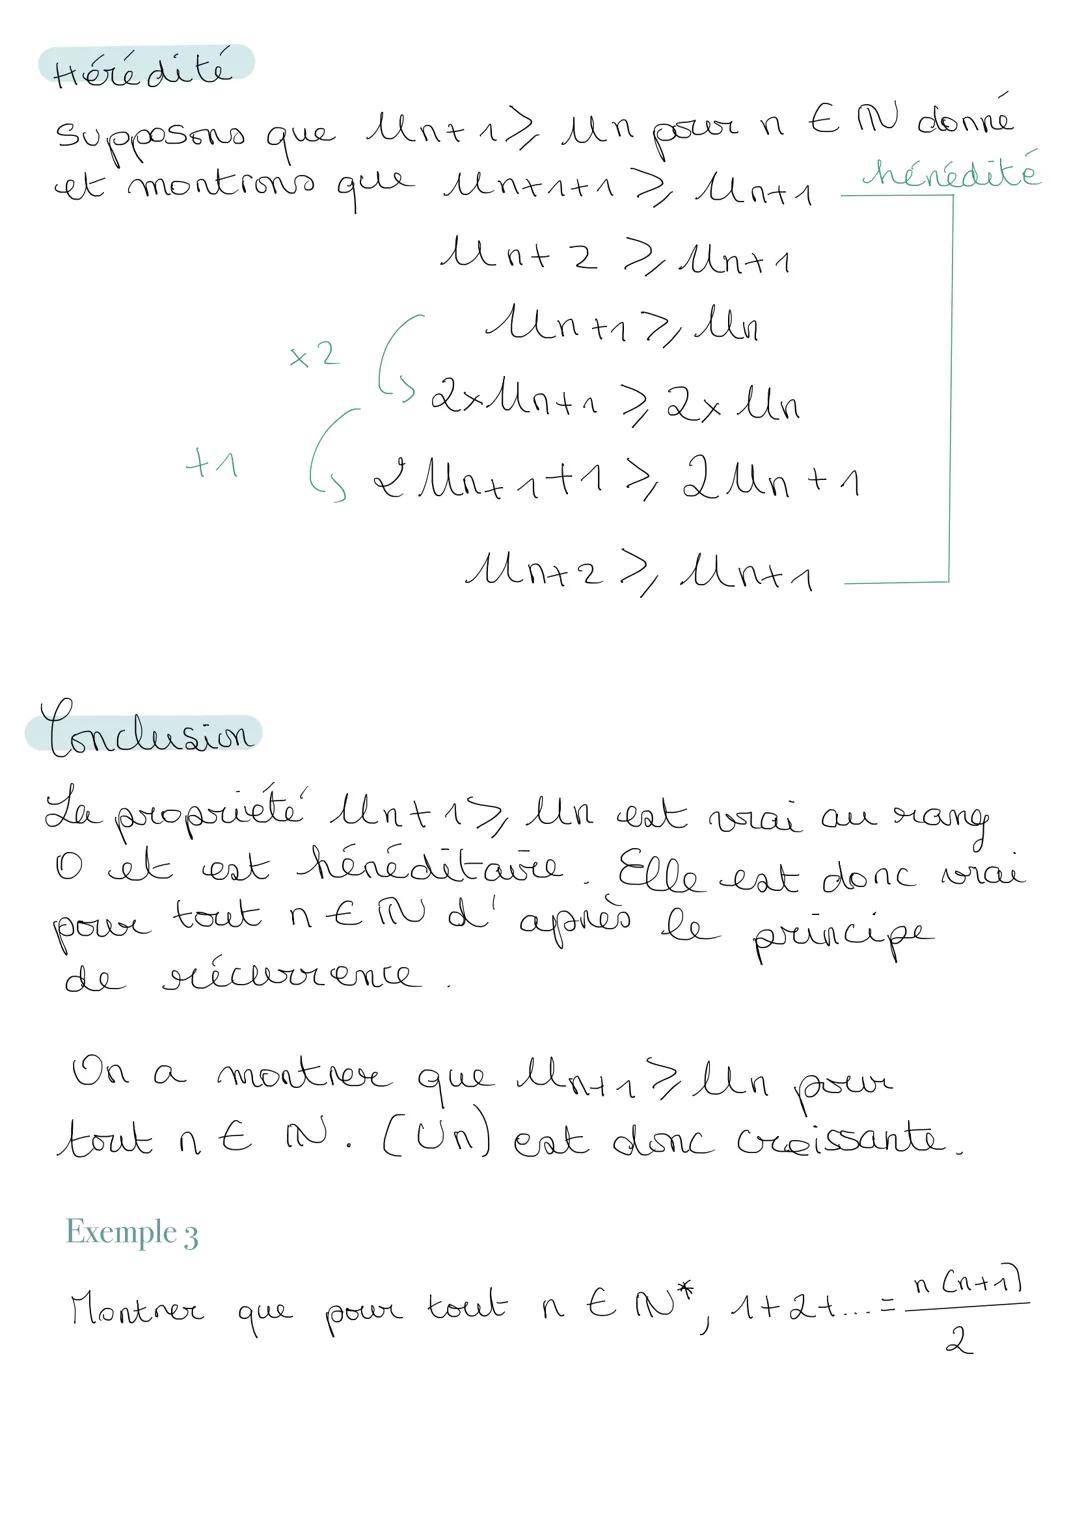 Hérédité
Supposons que Un+1 ⩾ Un pour n ∈ ℕ donné
et montrons que Un+1+1 ⩾ Un+1
hérédité
Un+2 ⩾ Un+1
Un+1 ⩾ Un
×2
2×Un+1 ⩾ 2×Un
+1
2Un+1+1 ⩾ 2Un+1
Un+2 ⩾ Un+1
Conclusion
La propriété Un+1 ⩾ Un est vrai au rang
0 et est héréditaire. Elle est donc vrai
pour tout n ∈ ℕ d'après le principe
de récurrence.
On a montrer que Un+1 ⩾ Un pour
tout n ∈ ℕ. (Un) est donc croissante.
Exemple 3
Montrer que pour tout n ∈ ℕ*, 1+2+...= n(n+1)
2